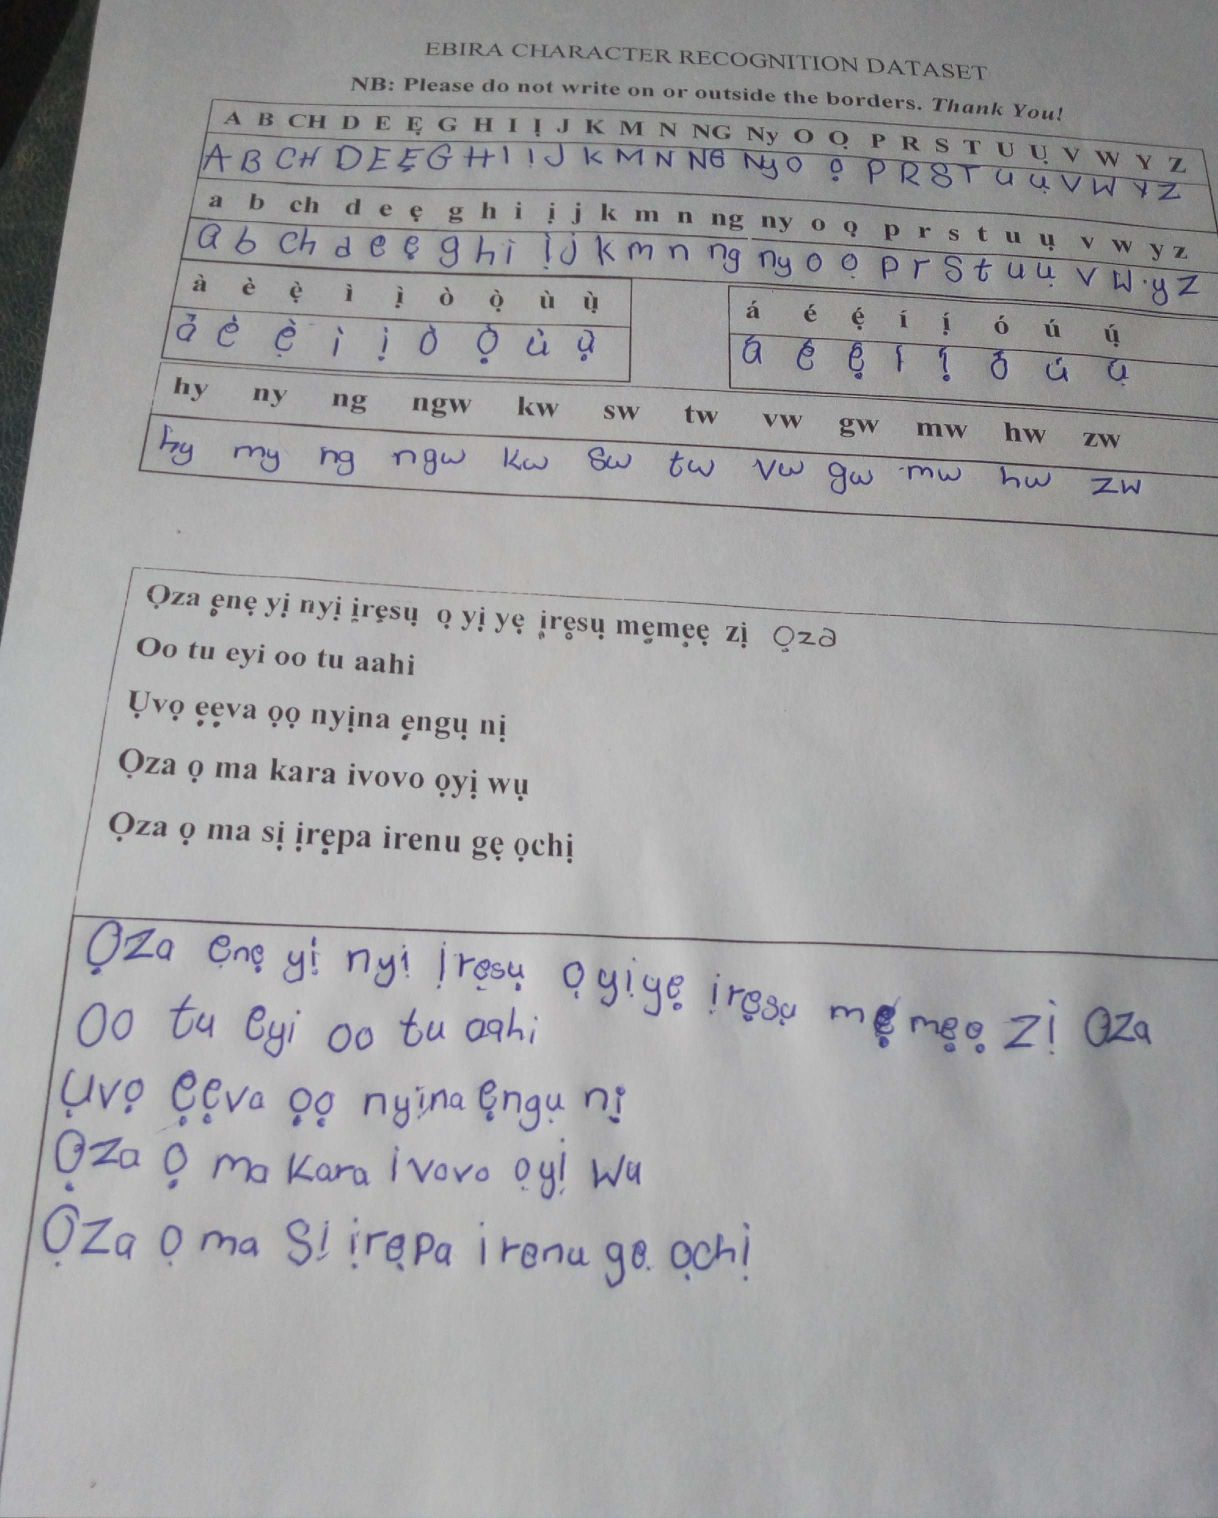 EBIRA CHARACTER RECOGNITION DATASET
NB: Please do not write on or outside the borders. Thank You!
A B CH D E Ẹ G H I Ị J K M N NG Ny O Ọ P R S T U Ụ V W Y Z
A B CH D E Ẹ G H I Ị J K M N NG Ny O Ọ P R S T U Ụ V W Y Z
a b ch d e ẹ g h i ị j k m n ng ny o ọ p r s t u ụ v w y z
a b ch d e ẹ g h i ị j k m n ng ny o ọ p r s t u ụ v w y z
à è ẹ̀ ì ị̀ ò ọ̀ ù ụ̀
á é ẹ́ í ị́ ó ú ụ́
à è ẹ̀ ì ị̀ ò ọ̀ ù ụ̀
á é ẹ́ í ị́ ó ú ụ́
hy ny ng ngw kw sw tw vw gw mw hw zw
hy my ng ngw kw sw tw vw gw mw hw zw
Ọza ẹnẹ yị nyị ịrẹsụ ọ yị yẹ ịrẹsụ mẹmẹẹ zị Ọza
Oo tu eyi oo tu aahi
Ụvọ ẹẹva ọọ nyịna ẹngụ nị
Ọza ọ ma kara ivovo ọyị wụ
Ọza ọ ma sị ịrẹpa irenu gẹ ọchị
Ọza enẹ yị nyị ịrẹsụ ọ yị yẹ ịrẹsụ mẹmẹẹ zị Oza
Oo tu eyi oo tu aahi
Ụvọ ẹẹva ọọ nyịna ẹngụ nị
Ọza ọ ma kara ivovo ọyị wu
Ọza ọ ma sị ịrẹpa irenu ge. ọchị